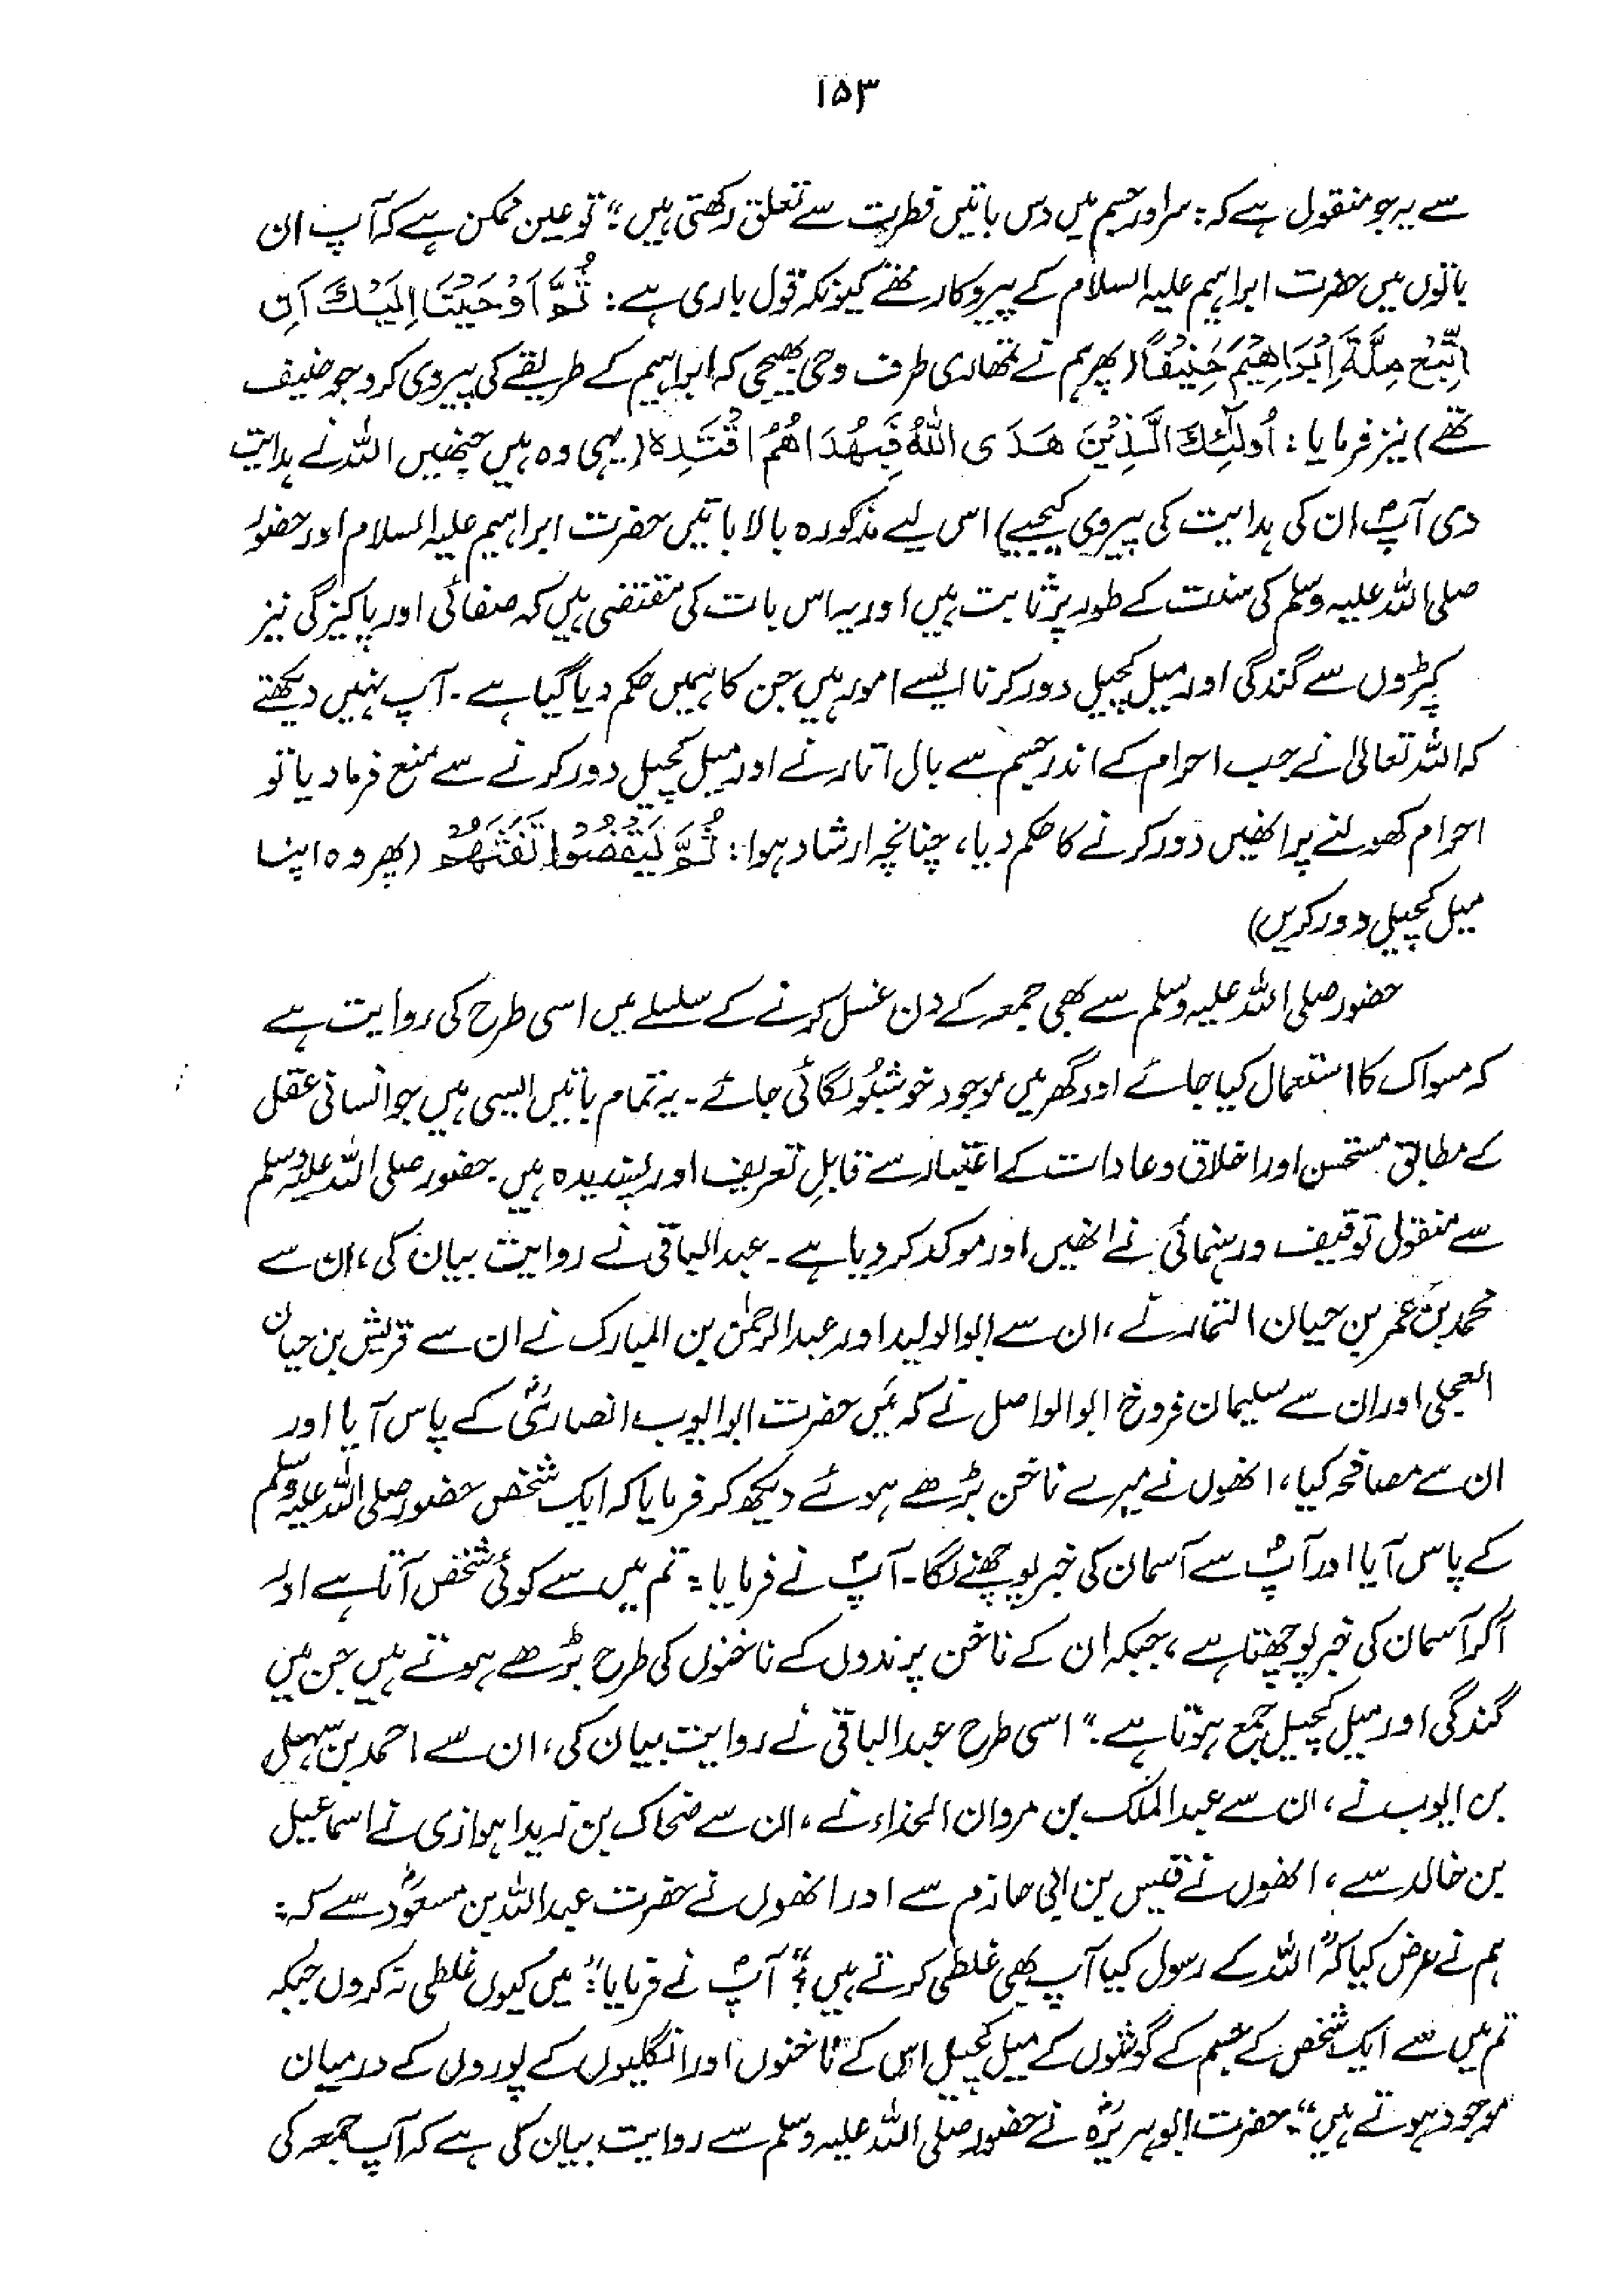 ۱۵۳
سے یہ جو منقول ہے کہ: سر اور جسم میں دس باتیں فطرت سے تعلق رکھتی ہیں“ تو عین ممکن ہے کہ آپ ان
باتوں میں حضرت ابراہیم علیہ السلام کے پیروکار تھے کیونکہ قول باری ہے: ثُمَّ اَوْحَيْنَا اِلَيْكَ اَنِ
اتَّبِعْ مِلَّةَ اِبْرَاهِيْمَ حَنِيْفًا (پھر ہم نے تمھاری طرف وحی بھیجی کہ ابراہیم کے طریقے کی پیروی کرو جو حنیف
تھے) نیز فرمایا: اُولٰٓئِكَ الَّذِيْنَ هَدَى اللّٰهُ فَبِهُدَاهُمُ اقْتَدِهْ (یہی وہ ہیں جنھیں اللہ نے ہدایت
دی آپؐ ان کی ہدایت کی پیروی کیجیے) اس لیے مذکورہ بالا باتیں حضرت ابراہیم علیہ السلام اور حضور
صلی اللہ علیہ وسلم کی سنت کے طور پر ثابت ہیں اور یہ اس بات کی مقتضی ہیں کہ صفائی اور پاکیزگی نیز
کپڑوں سے گندگی اور میل کچیل دور کرنا ایسے امور ہیں جن کا ہمیں حکم دیا گیا ہے۔ آپ نہیں دیکھتے
کہ اللہ تعالیٰ نے جب احرام کے اندر جسم سے بال اتارنے اور میل کچیل دور کرنے سے منع فرما دیا تو
احرام کھولنے پر انھیں دور کرنے کا حکم دیا، چنانچہ ارشاد ہوا: ثُمَّ لْيَقْضُوْا تَفَثَهُمْ (پھر وہ اپنا
میل کچیل دور کریں)
حضور صلی اللہ علیہ وسلم سے بھی جمعہ کے دن غسل کرنے کے سلسلے میں اسی طرح کی روایت ہے
کہ مسواک کا استعمال کیا جائے اور گھر میں موجود خوشبُو لگائی جائے۔ یہ تمام باتیں ایسی ہیں جو انسانی عقل
کے مطابق مستحسن اور اخلاق و عادات کے اعتبار سے قابلِ تعریف اور پسندیدہ ہیں۔ حضور صلی اللہ علیہ وسلم
سے منقول توقیف و رہنمائی نے انھیں اور موکد کر دیا ہے۔ عبدالباقی نے روایت بیان کی، ان سے
محمد بن عمر بن حیان التمار نے، ان سے ابوالولید اور عبدالرحمٰن بن المبارک نے ان سے قریش بن حیان
العجلی اور ان سے سلیمان فروخ ابوالواصل نے کہ مَیں حضرت ابوایوب انصاریؓ کے پاس آیا اور
ان سے مصافحہ کیا، انھوں نے میرے ناخن بڑھے ہوئے دیکھ کر فرمایا کہ ایک شخص حضور صلی اللہ علیہ وسلم
کے پاس آیا اور آپؐ سے آسمان کی خبر پوچھنے لگا۔ آپؐ نے فرمایا: تم میں سے کوئی شخص آتا ہے اور
آکر آسمان کی خبر پوچھتا ہے، جبکہ ان کے ناخن پرندوں کے ناخنوں کی طرح بڑھے ہوتے ہیں جن میں
گندگی اور میل کچیل جمع ہوتا ہے۔“ اسی طرح عبدالباقی نے روایت بیان کی، ان سے احمد بن سہل
بن ایوب نے، ان سے عبدالملک بن مروان الحذاء نے، ان سے ضحاک بن زید اہوازی نے اسماعیل
بن خالد سے، انھوں نے قیس بن ابی حازم سے اور انھوں نے حضرت عبداللہ بن مسعودؓ سے کہ:
ہم نے عرض کیا کہ ”اللہ کے رسول کیا آپ بھی غلطی کرتے ہیں؟“ آپؐ نے فرمایا: ”میں کیوں غلطی نہ کروں جبکہ
تم میں سے ایک شخص کے جسم کے گوشوں کے میل کچیل اس کے ناخنوں اور انگلیوں کے پوروں کے درمیان
موجود ہوتے ہیں“۔ حضرت ابوہریرہؓ نے حضور صلی اللہ علیہ وسلم سے روایت بیان کی ہے کہ آپ جمعہ کی